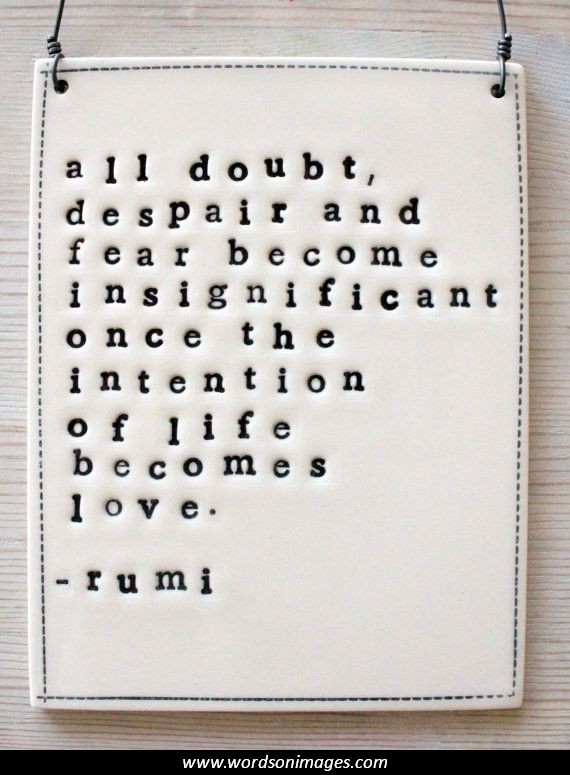 all doubt,
despair and
fear become
insignificant
once the
intention
of life
becomes
love.
-rumi
www.wordsonimages.com